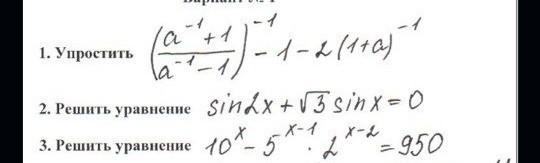 Вариант № 1
1. Упростить ((a^{-1}+1)/(a^{-1}-1))^{-1} - 1 - 2(1+a)^{-1}
2. Решить уравнение sin2x + √3 sinx = 0
3. Решить уравнение 10^x - 5^{x-1} · 2^{x-2} = 950